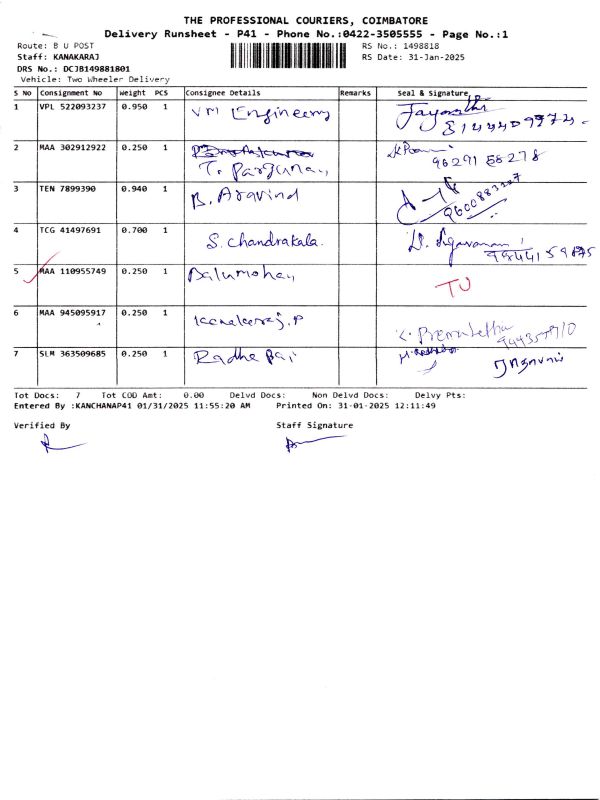 THE PROFESSIONAL COURIERS, COIMBATORE
Delivery Runsheet - P41 - Phone No.:0422-3505555 - Page No.:1
Route: B U POST
RS No.: 1498818
Staff: KANAKARAJ
RS Date: 31-Jan-2025
DRS No.: DCJB149881801
Vehicle: Two Wheeler Delivery
S No Consignment No Weight PCS Consignee Details Remarks Seal & Signature
1 VPL 522093237 0.950 1 VM Engineering
2 MAA 302912922 0.250 1
T.
3 TEN 7899390 0.940 1 B. Aravind
9600883207
4 TCG 41497691 0.700 1 S. Chandrakala.
5 MAA 110955749 0.250 1 Balumohan
6 MAA 945095917 0.250 1 Kanakaraj.P
K. Premaletha
7 SLM 363509685 0.250 1 Radha bai
Tot Docs: 7 Tot COD Amt: 0.00 Delvd Docs: Non Delvd Docs: Delvy Pts:
Entered By :KANCHANAP41 01/31/2025 11:55:20 AM Printed On: 31-01-2025 12:11:49
Verified By
Staff Signature